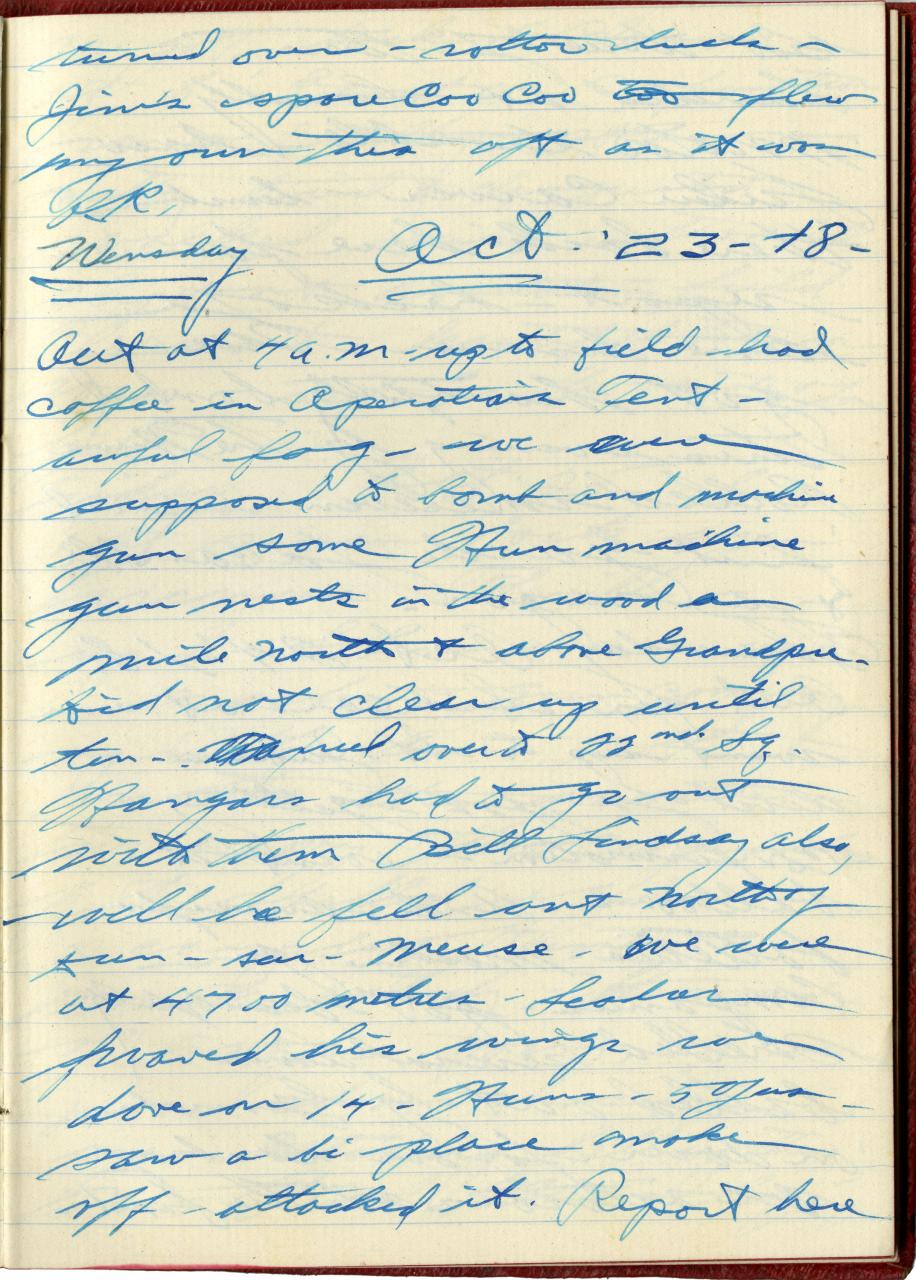 turned over - rotten luck -
Jim's spare Coo Coo too flew
my own this aft as it was
O.K.
Wensday Oct. '23-18-
Out at 4 a.m - up to field - had
coffee in Operations Tent -
awful fog - we were
supposed to bomb and machine
gun some Hun machine
gun nests in the wood a
mile north & above Grandpre.
Did not clear up until
ten - over to 22nd Sq.
Hangars had to go out
with them Bill Lindsay also,
well he fell out north of
Dun - sur - Meuse - we were
at 4700 metres - Leader
his wings we
dove on 14 - Huns -
saw a bi place make
off - attacked it. Report here